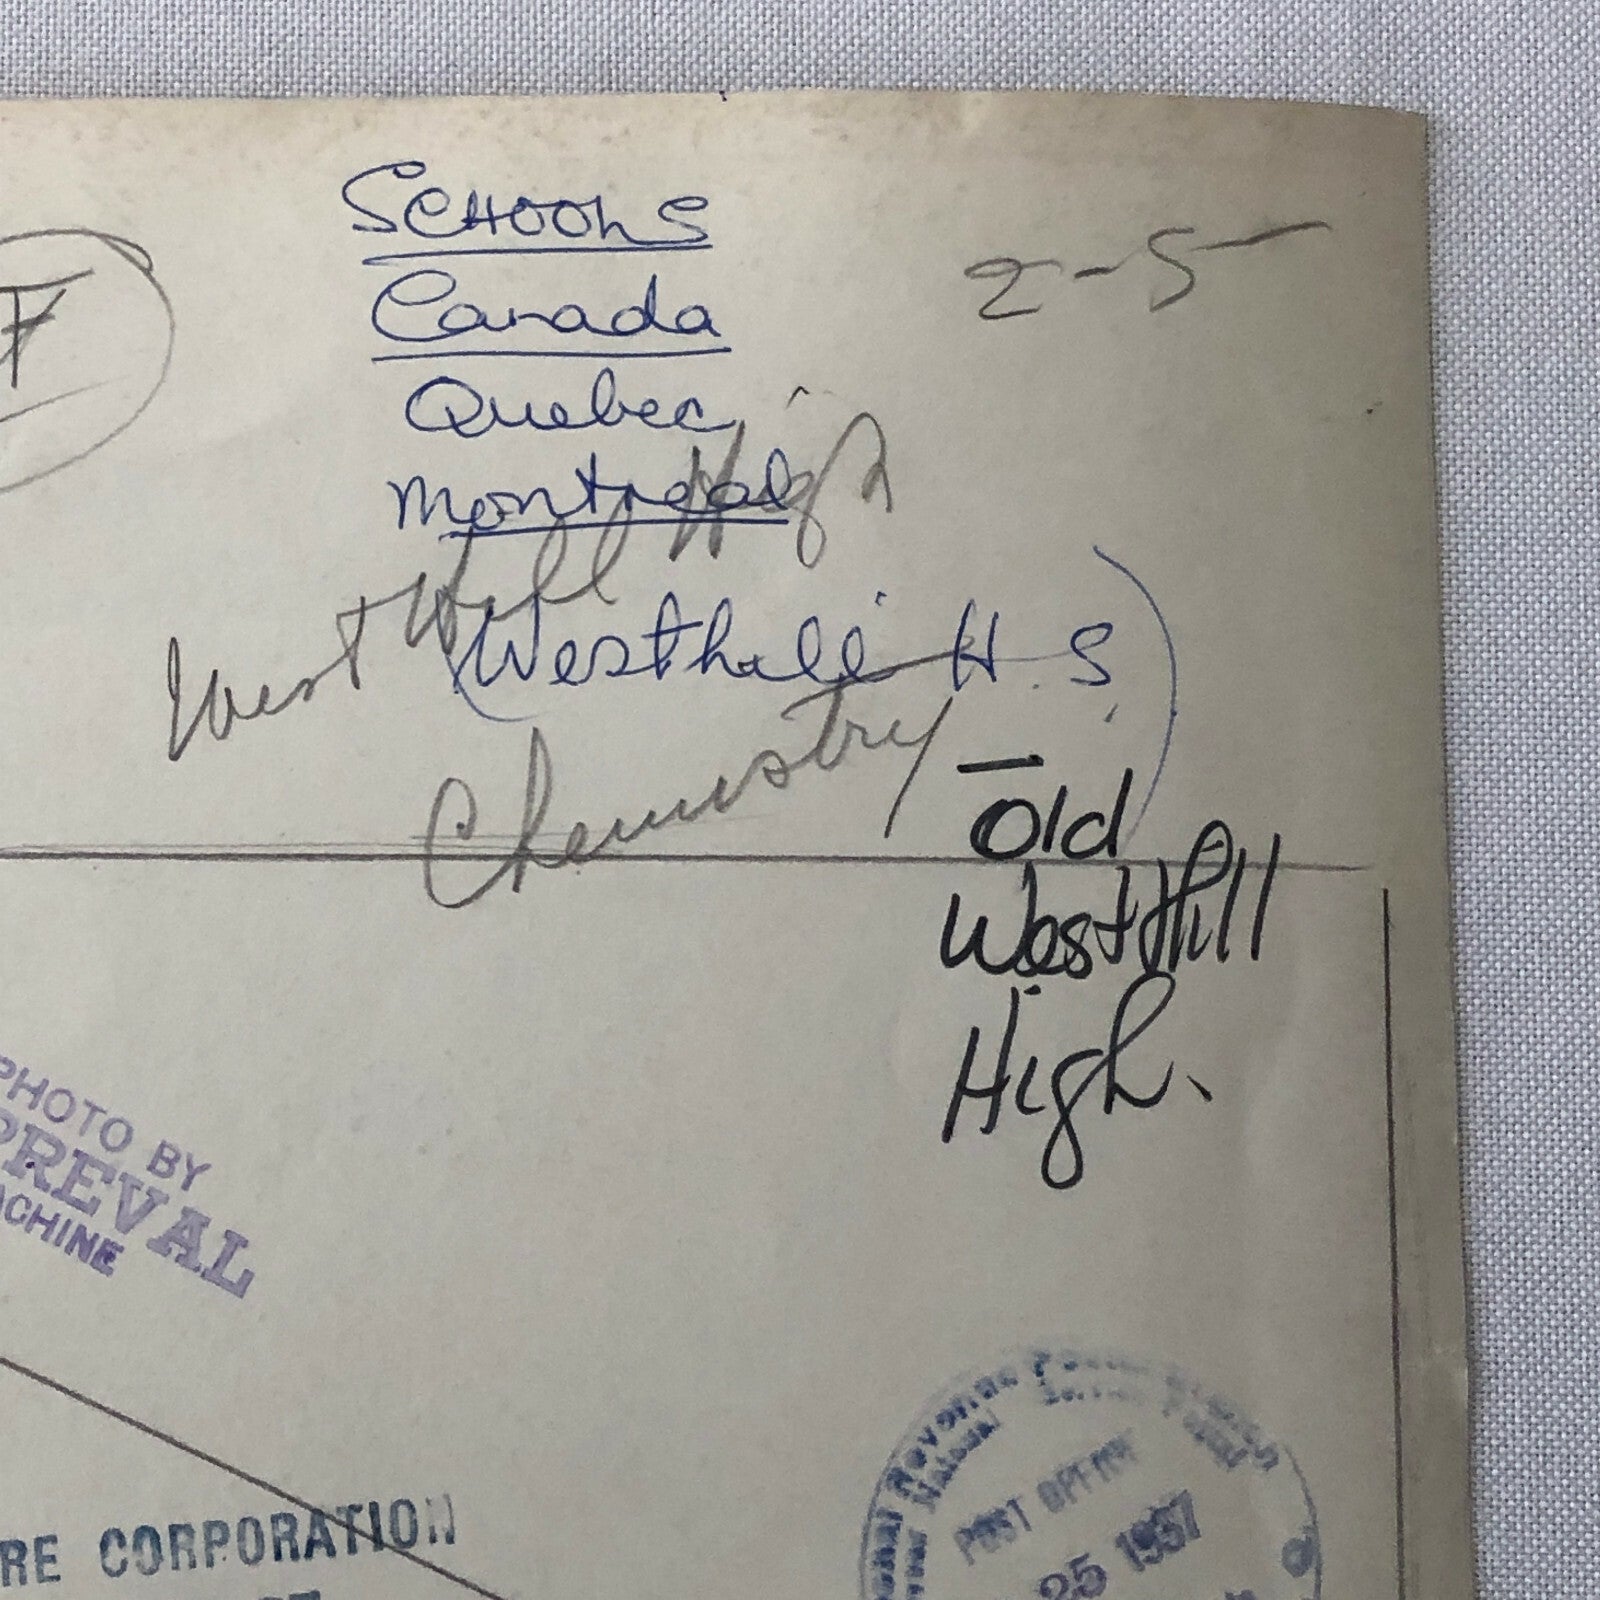 Schools
2-5
F
Canada
Quebec
Montreal
West Hill High
(Westhill H.S.)
Chemistry
Old
West Hill
High.
PHOTO BY
PREVAL
ACHINE
POST OFFICE
25 1957
RE CORPORATION